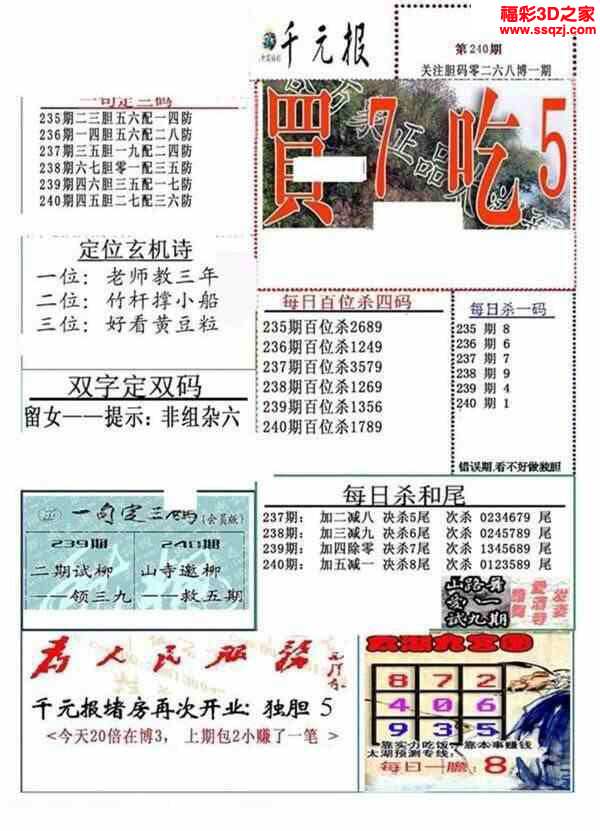 福彩3D之家
www.ssqzj.com
千元报
第240期
关注胆码零二六八博一期
一句定三码
235期二三胆五六配一四防
236期一四胆五六配二八防
237期三五胆一九配二四防
238期六七胆零一配三五防
239期四六胆三五配一七防
240期四五胆二七配三六防
買7吃5
定位玄机诗
一位：老师教三年
二位：竹杆撑小船
三位：好看黄豆粒
每日百位杀四码
235期百位杀2689
236期百位杀1249
237期百位杀3579
238期百位杀1269
239期百位杀1356
240期百位杀1789
每日杀一码
235 期 8
236 期 6
237 期 7
238 期 9
239 期 4
240 期 1
错误期,看不好做独胆
双字定双码
留女——提示：非组杂六
每日杀和尾
237期：加二减八 决杀5尾 次杀 0234679 尾
238期：加三减九 决杀6尾 次杀 0245789 尾
239期：加四除零 决杀7尾 次杀 1345689 尾
240期：加五减一 决杀8尾 次杀 0123589 尾
一句定三码(会员版)
239期
二期试柳
——领三九
240期
山寺邀柳
——救五期
山路舞
爱一
试九期
为人民服务
千元报堵房再次开业: 独胆 5
<今天20倍在博3， 上期包2小赚了一笔 >
8 7 2
4 0 6
9 3 5
靠实力吃饭，靠本事赚钱
太湖预测专线，
每日一胆: 8